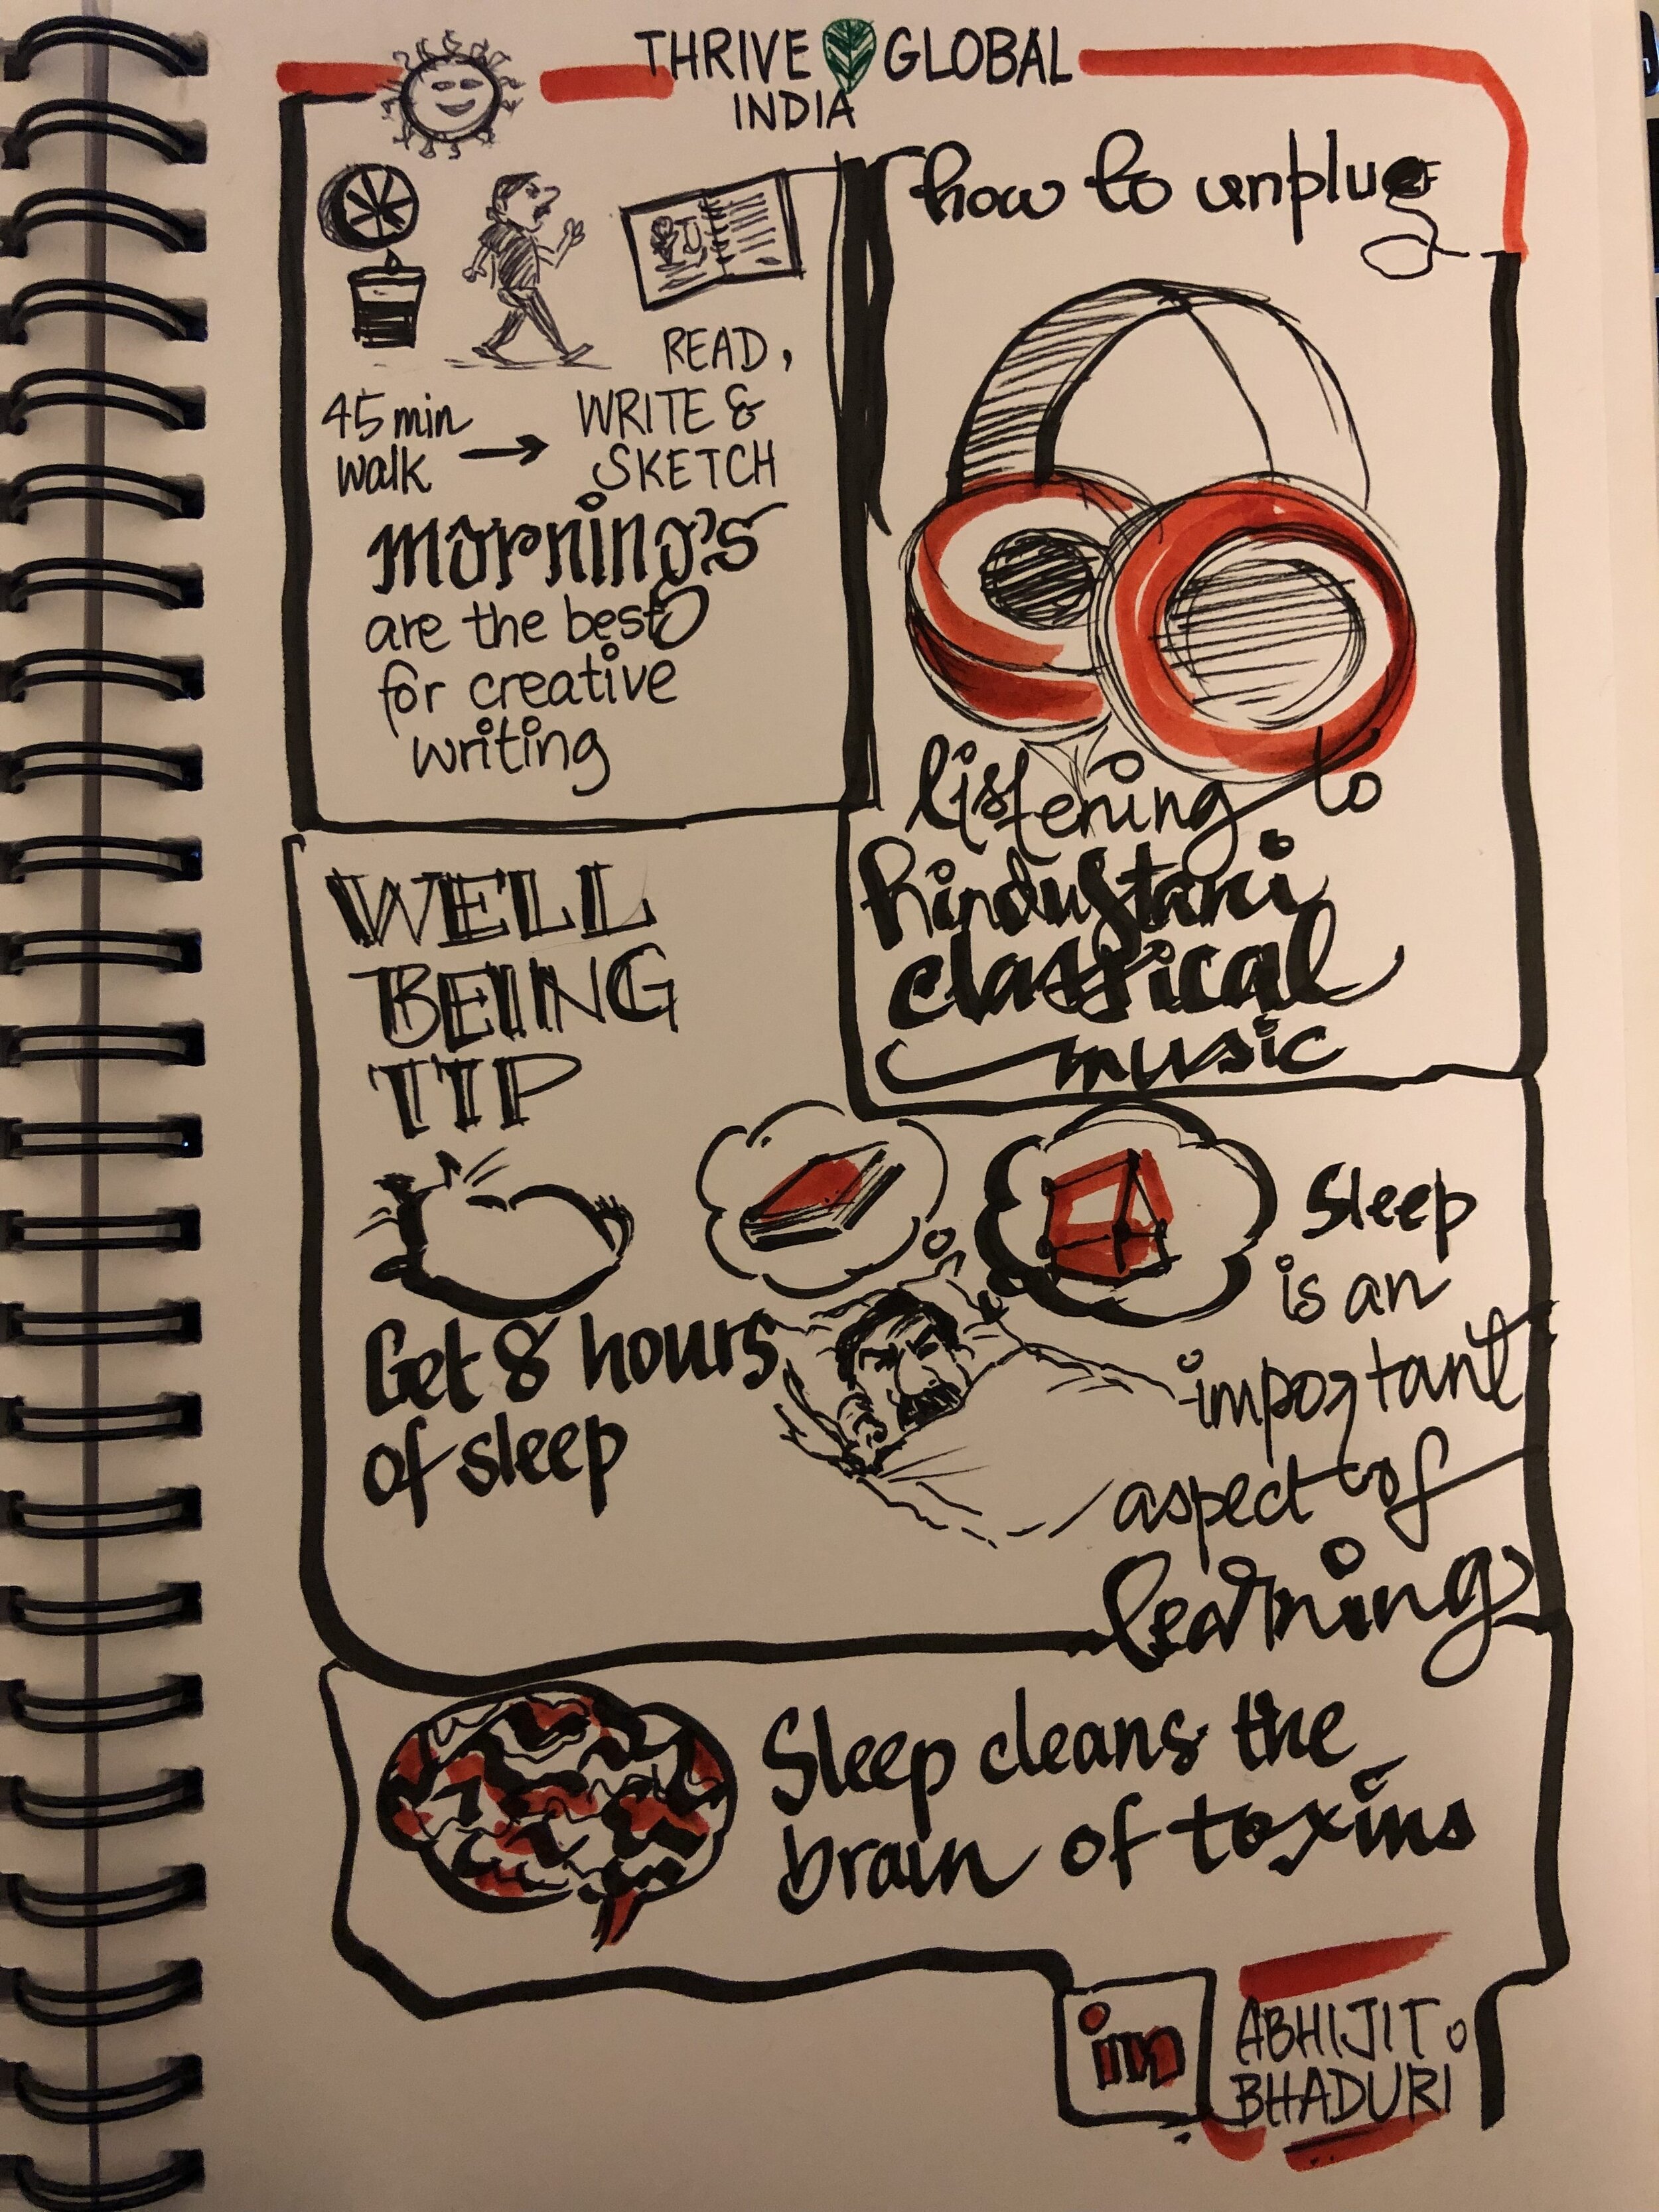 THRIVE GLOBAL
INDIA
45 min
walk
READ,
WRITE &
SKETCH
mornings
are the best
for creative
writing
how to unplug
listening to
hindustani
classical
music
WELL
BEING
TIP
Get 8 hours
of sleep
Sleep
is an
important
aspect of
learning
Sleep cleans the
brain of toxins
in
ABHIJIT
BHADURI